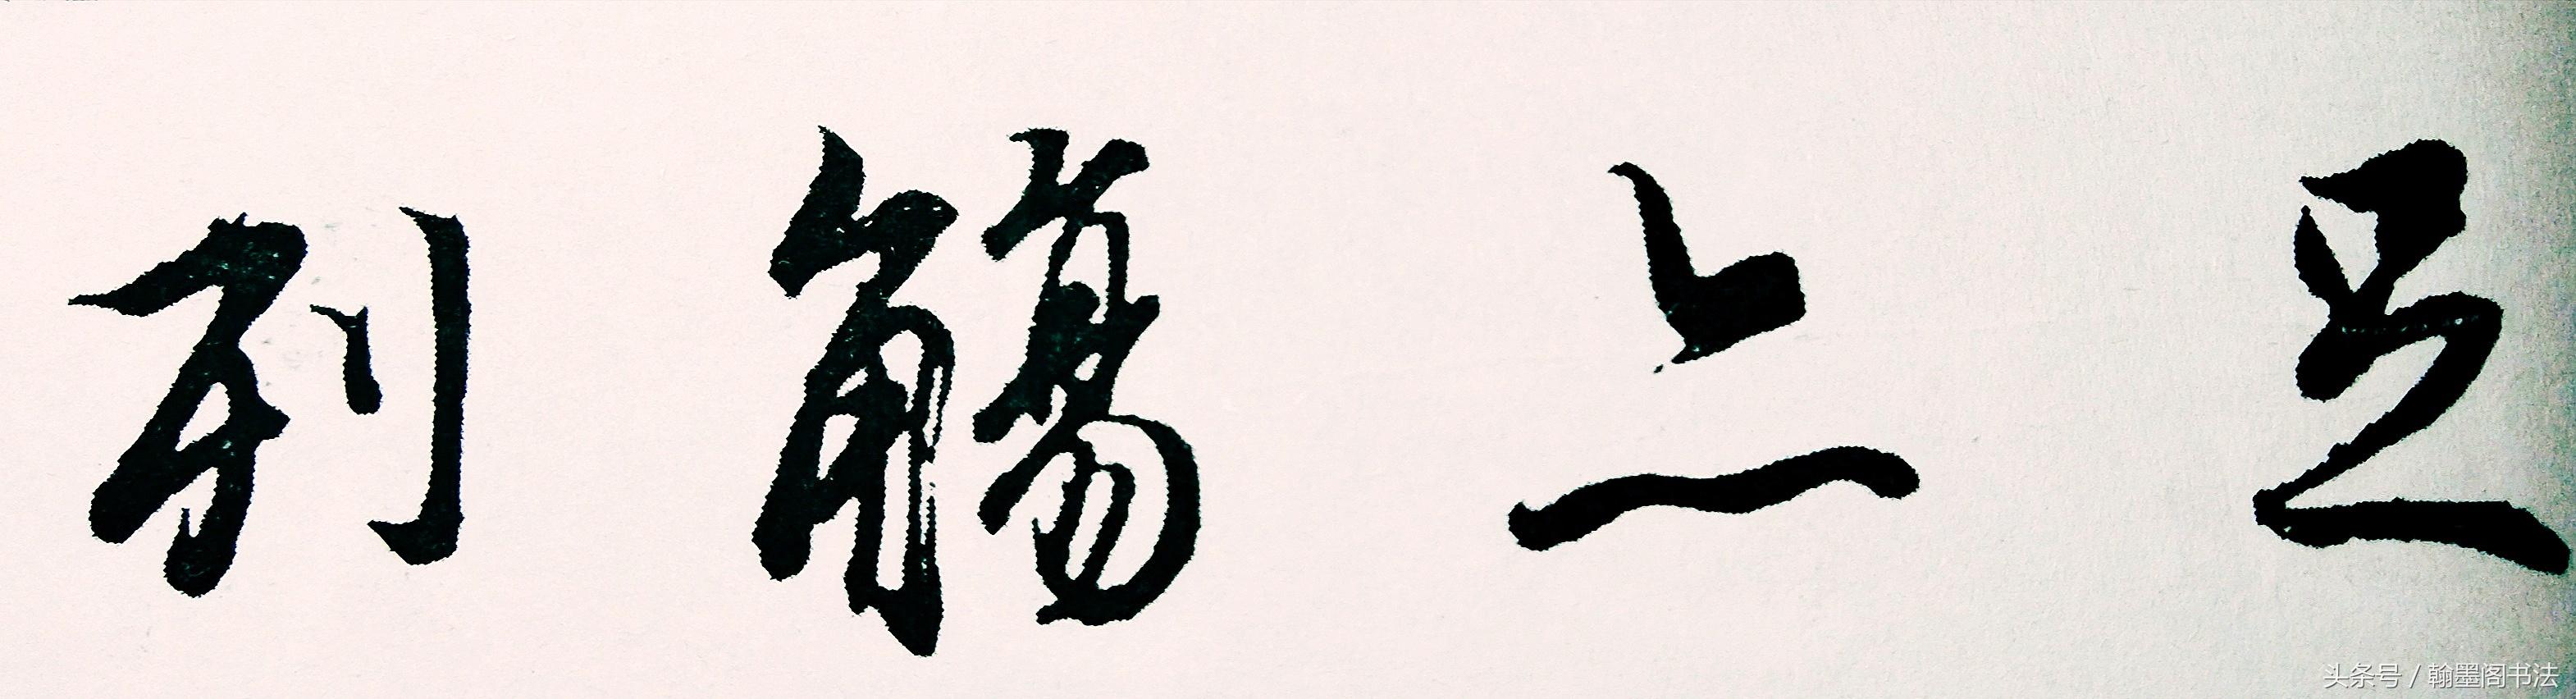 列觴上足
头条号 / 翰墨阁书法